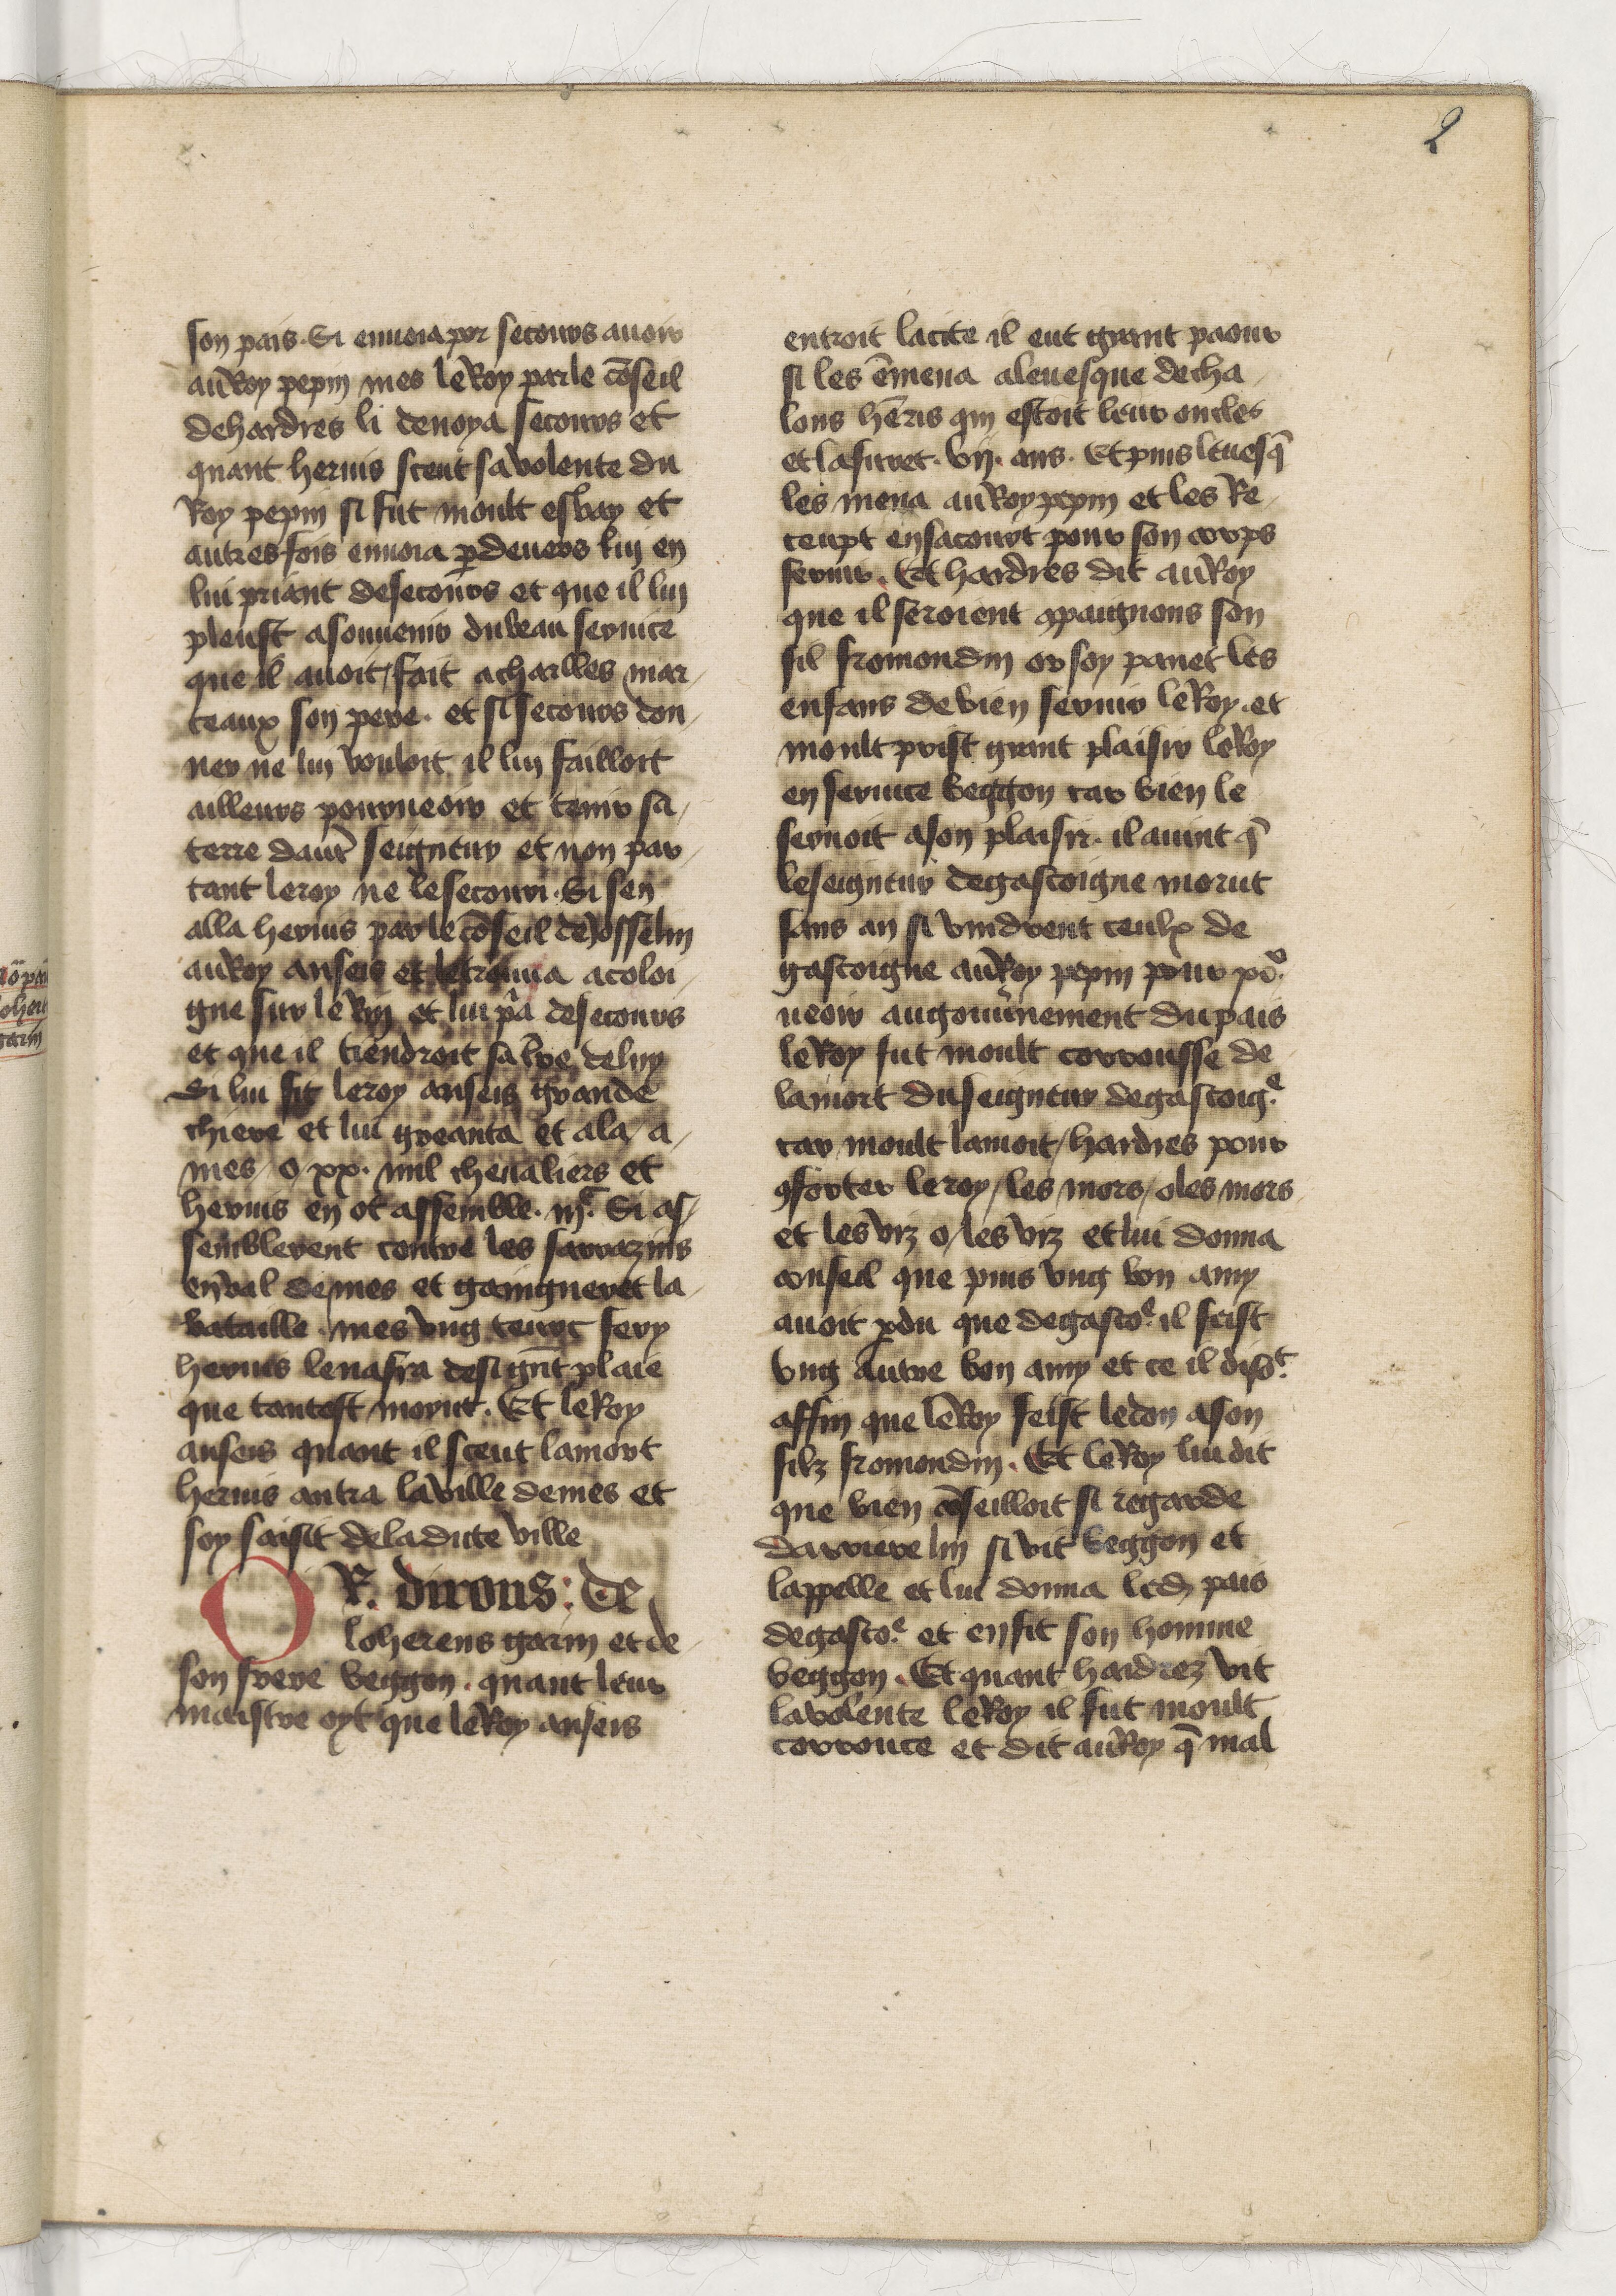 2
son pais. Si enuoia por secours auoir
au Roy pepin mes le Roy par le cōseil
de hardres li denoya secours et
quant heruis sceut sa volente du
Roy pepin si fut moult esbay et
autresfois enuoia ꝑdeuers luy en
lui priant de secours et que il luy
pleust a souuenir du beau seruice
que il auoit / fait a charlles mar /
teaux son pere. et si secours don /
ner ne luy vouloit il luy failloit
ailleurs pourueoir et tenir sa /
terre daut̃ seigneur et non par /
tant le roy ne le secouri. Si sen
alla heruis par le cōseil de Josselin
au Roy anseis et le trouua a coloi /
gne sur le Rin et lui p̃a de secours
et que il tiendroit sa t̃re de luy
Si lui fit le roy anseis grande
chiere et lui greanta et ala a /
mes / o xx. mil cheualiers et
heruis en ot assemble. iij.ͨ Si as /
semblerent contre les sarrazins
en val de mes et gaingneret la /
bataille. mes vng teurc fery
heruis le nafra de si gñt plaie
que tantost morut. Et le Roy
anseis quant il sceut la mort
heruis antra la ville de mes et
soy saisit de la dicte ville
OR. dirons: de
loherens garin et de
son frere beggon. quant leur
maistre oyt que le Roy anseis
entroit la cite il eut grant paour
si les ēmena a leuesque de cha /
lons hēris qui estoit leur oncles
et la furet. vij. ans. Et puis leuesq̃
les mena au Roy pepin et les Re /
ceupt en sa court pour son corps
seruir. Et hardres dit au Roy
que il seroient ꝯpaignons son
fil fromondin or soy panet les
enfans de bien seruir le Roy. et
moult prist grant plaisir le Roy
en seruice beggon car bien le
seruoit a son plaisir. il auint q̃
le seigneur de gascoigne morut
sans an si vindrent ceulx de
gascoigne au Roy pepin pour poͦ.
ueoir au gouũnement du pais
le Roy fut moult corrousse de
la mort du seigneur de gascoig.ͤ
car moult lamoit / hardres pour
ꝯforter le roy / les mors / o les mors
et les viz o / les viz et lui donna
conseil que puis vng bon amy
auoit ꝑdu que de gasco.ͤ il feist
vng autre bon amy et ce il diso.ͭ
affin que le Roy feist le don a son
filz fromondin. Et le Roy lui dit
que bien cōseilloit si regarde
darriere luy si vit beggon et
lappelle et lui donna led. pais
de gasco.ͤ et en fit son homme
beggon. Et quant hardrez vit
la volente le Roy il fut moult
corrouce et dit au Roy q̃ mal